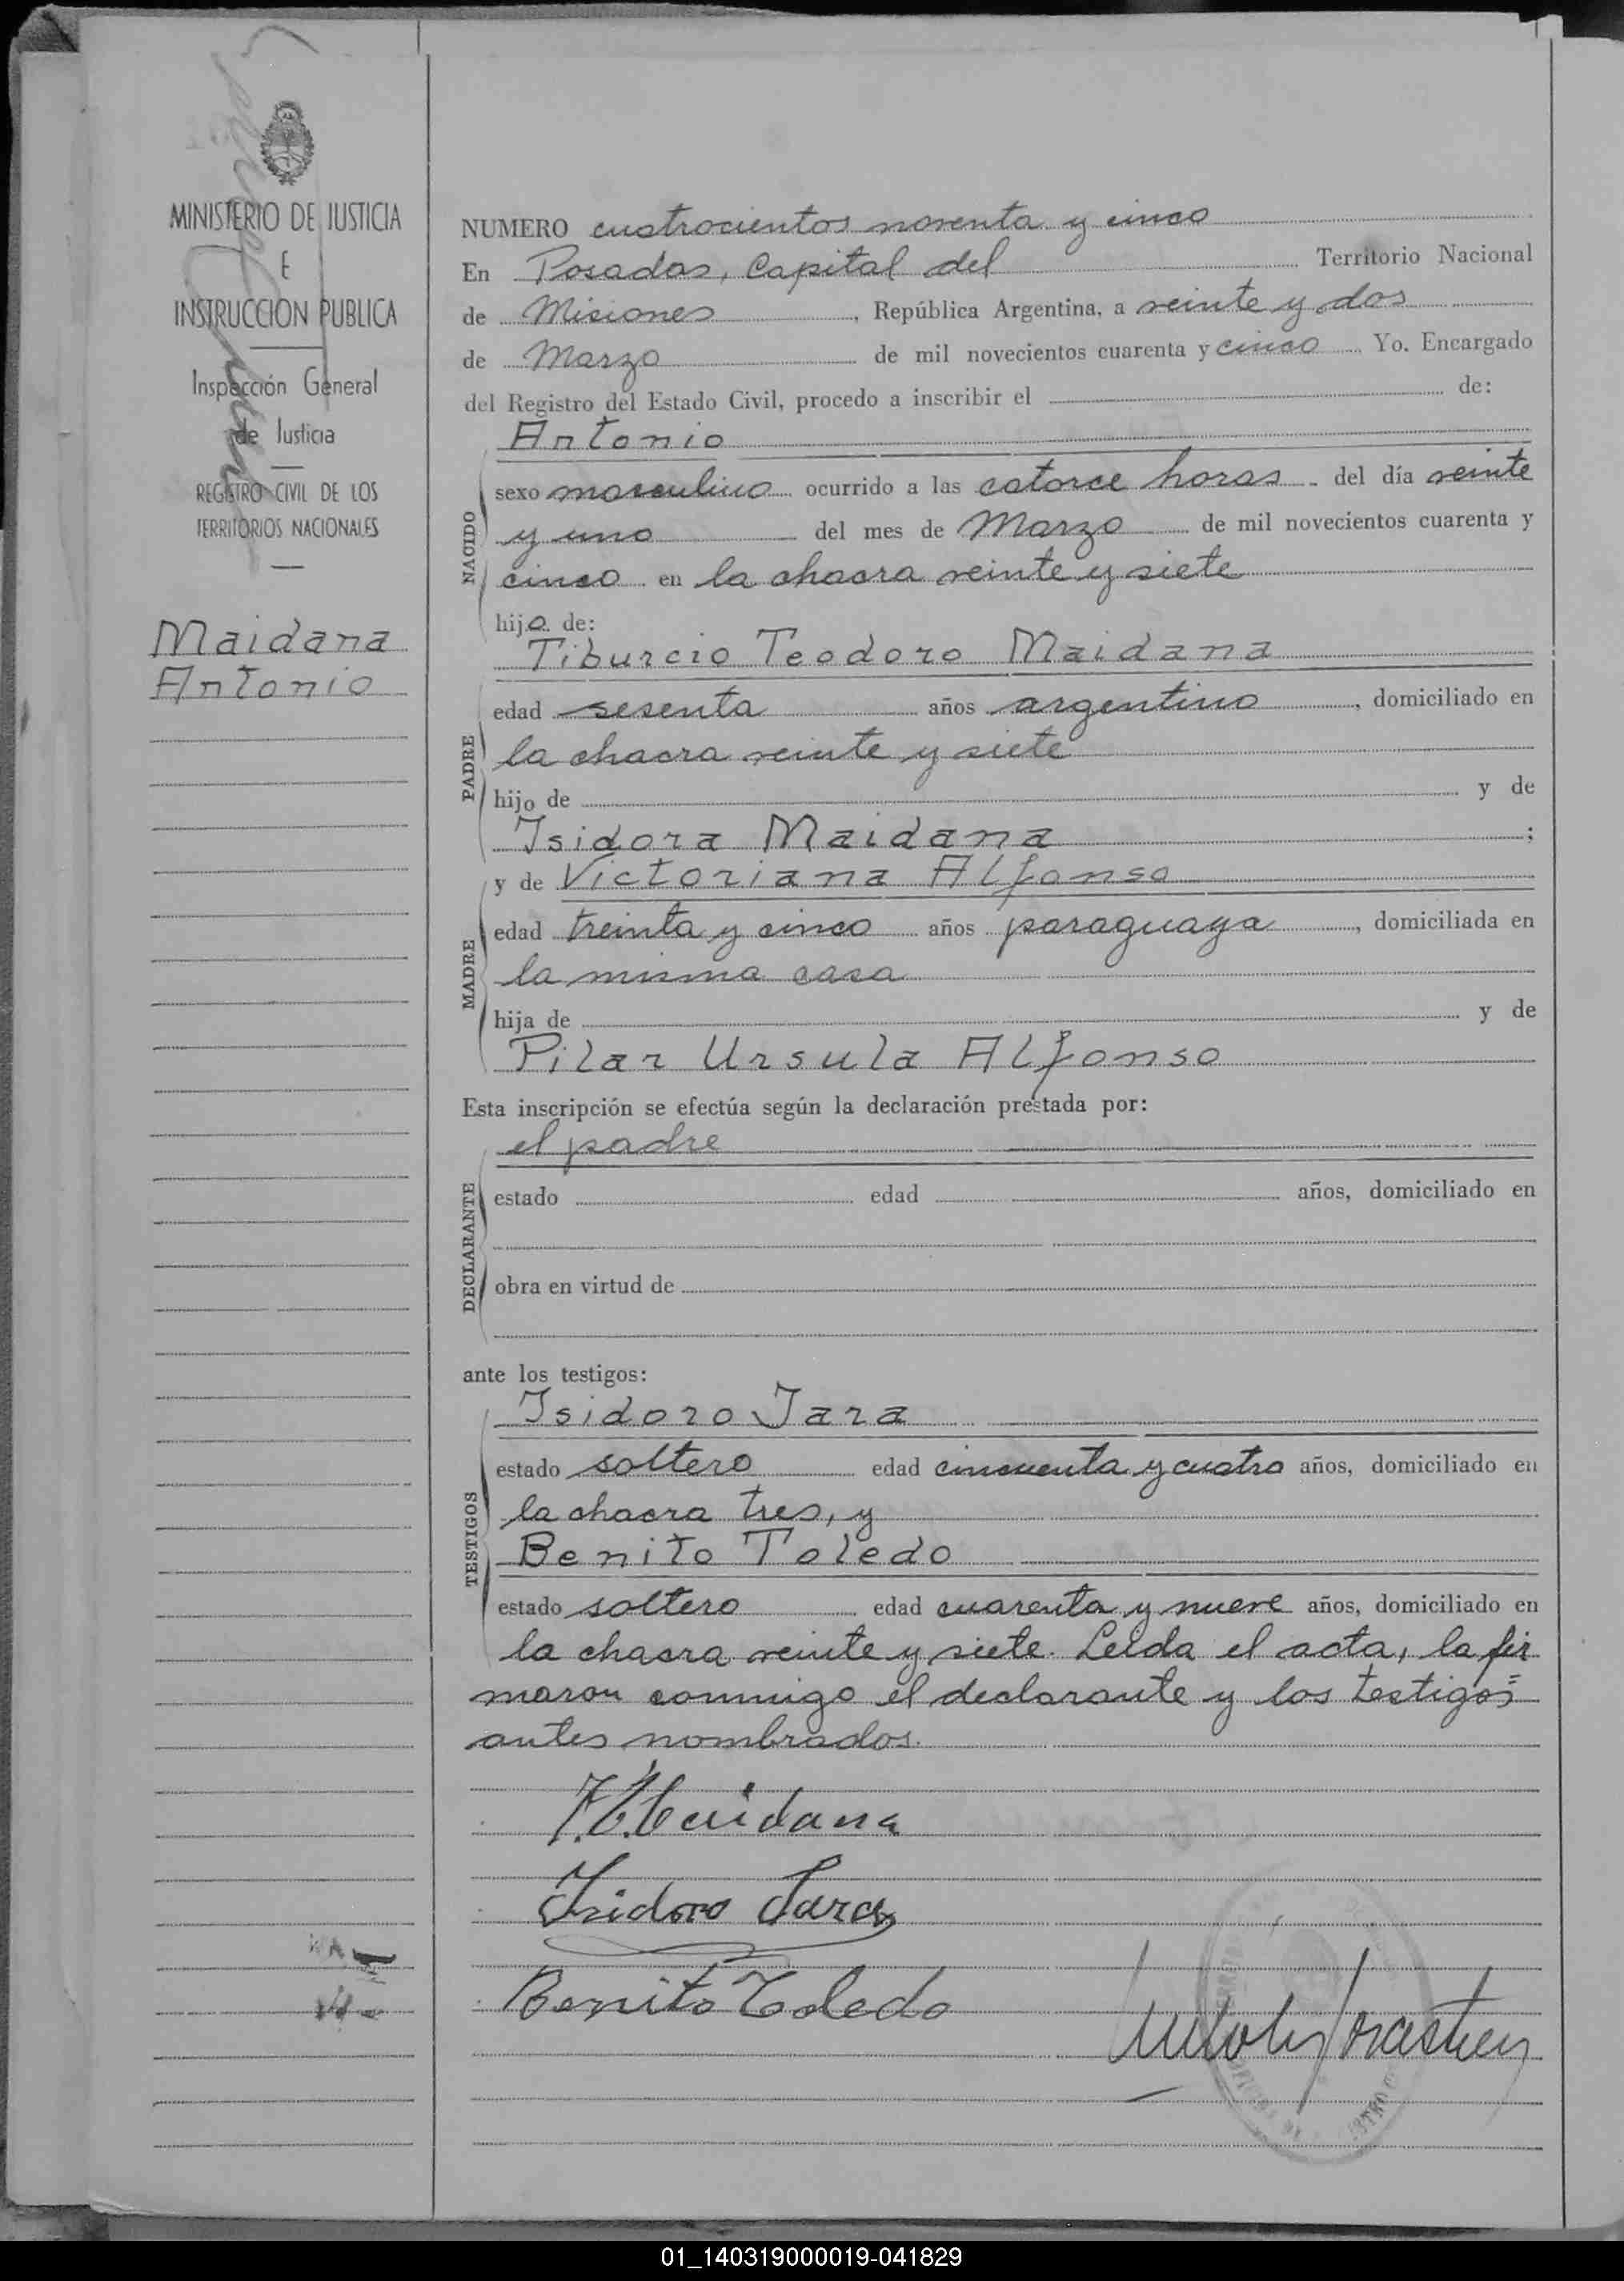 MINISTERIO DE JUSTICIA
E
INSTRUCCION PUBLICA
Inspección General
de Justicia
REGISTRO CIVIL DE LOS
TERRITORIOS NACIONALES
Maidana
Antonio
NUMERO cuatrocientos noventa y cinco
En Posadas, Capital del Territorio Nacional
de Misiones, República Argentina, a veinte y dos
de Marzo de mil novecientos cuarenta y cinco Yo. Encargado
del Registro del Estado Civil, procedo a inscribir el de:
Antonio
NACIDO
sexo masculino ocurrido a las catorce horas del día veinte
y uno del mes de Marzo de mil novecientos cuarenta y
cinco en la chacra veinte y siete
hijo de:
Tiburcio Teodoro Maidana
PADRE
edad sesenta años argentino, domiciliado en
la chacra veinte y siete
hijo de y de
Isidora Maidana;
y de Victoriana Alfonso
MADRE
edad treinta y cinco años paraguaya, domiciliada en
la misma casa
hija de y de
Pilar Ursula Alfonso
Esta inscripción se efectúa según la declaración prestada por:
el padre
DECLARANTE
estado edad años, domiciliado en
obra en virtud de
ante los testigos:
Isidoro Jara
TESTIGOS
estado soltero edad cincuenta y cuatro años, domiciliado en
la chacra tres, y
Benito Toledo
estado soltero edad cuarenta y nueve años, domiciliado en
la chacra veinte y siete. Leida el acta, la fir
maron conmigo el declarante y los testigos
antes nombrados.
Maidana
Isidoro Jara
Benito Toledo
01_140319000019-041829